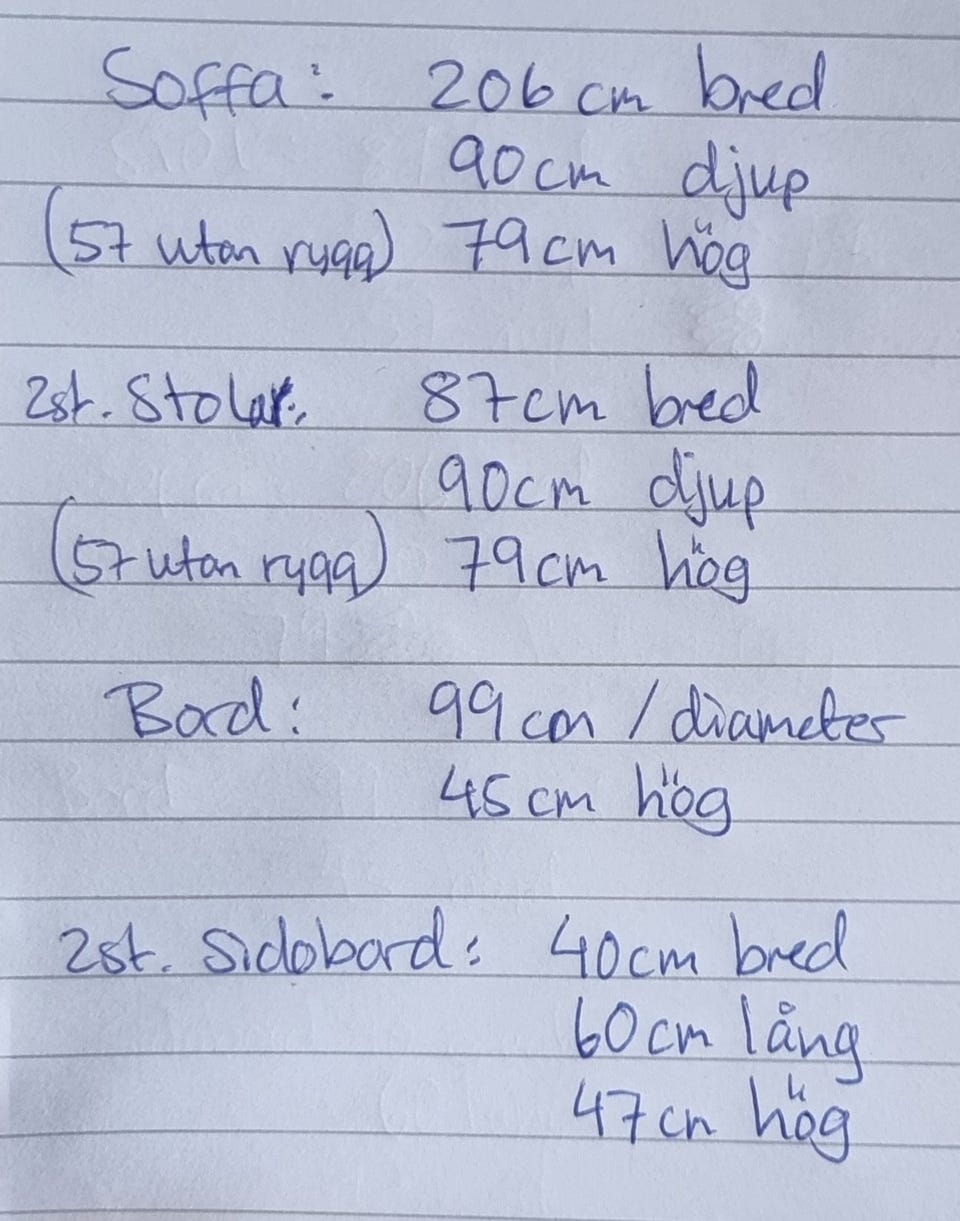 Soffa: 206 cm bred
90 cm djup
(57 utan rygg) 79 cm hög
2st. Stolar: 87 cm bred
90 cm djup
(57 utan rygg) 79 cm hög
Bord: 99 cm / diameter
45 cm hög
2st. Sidobord: 40 cm bred
60 cm lång
47 cm hög